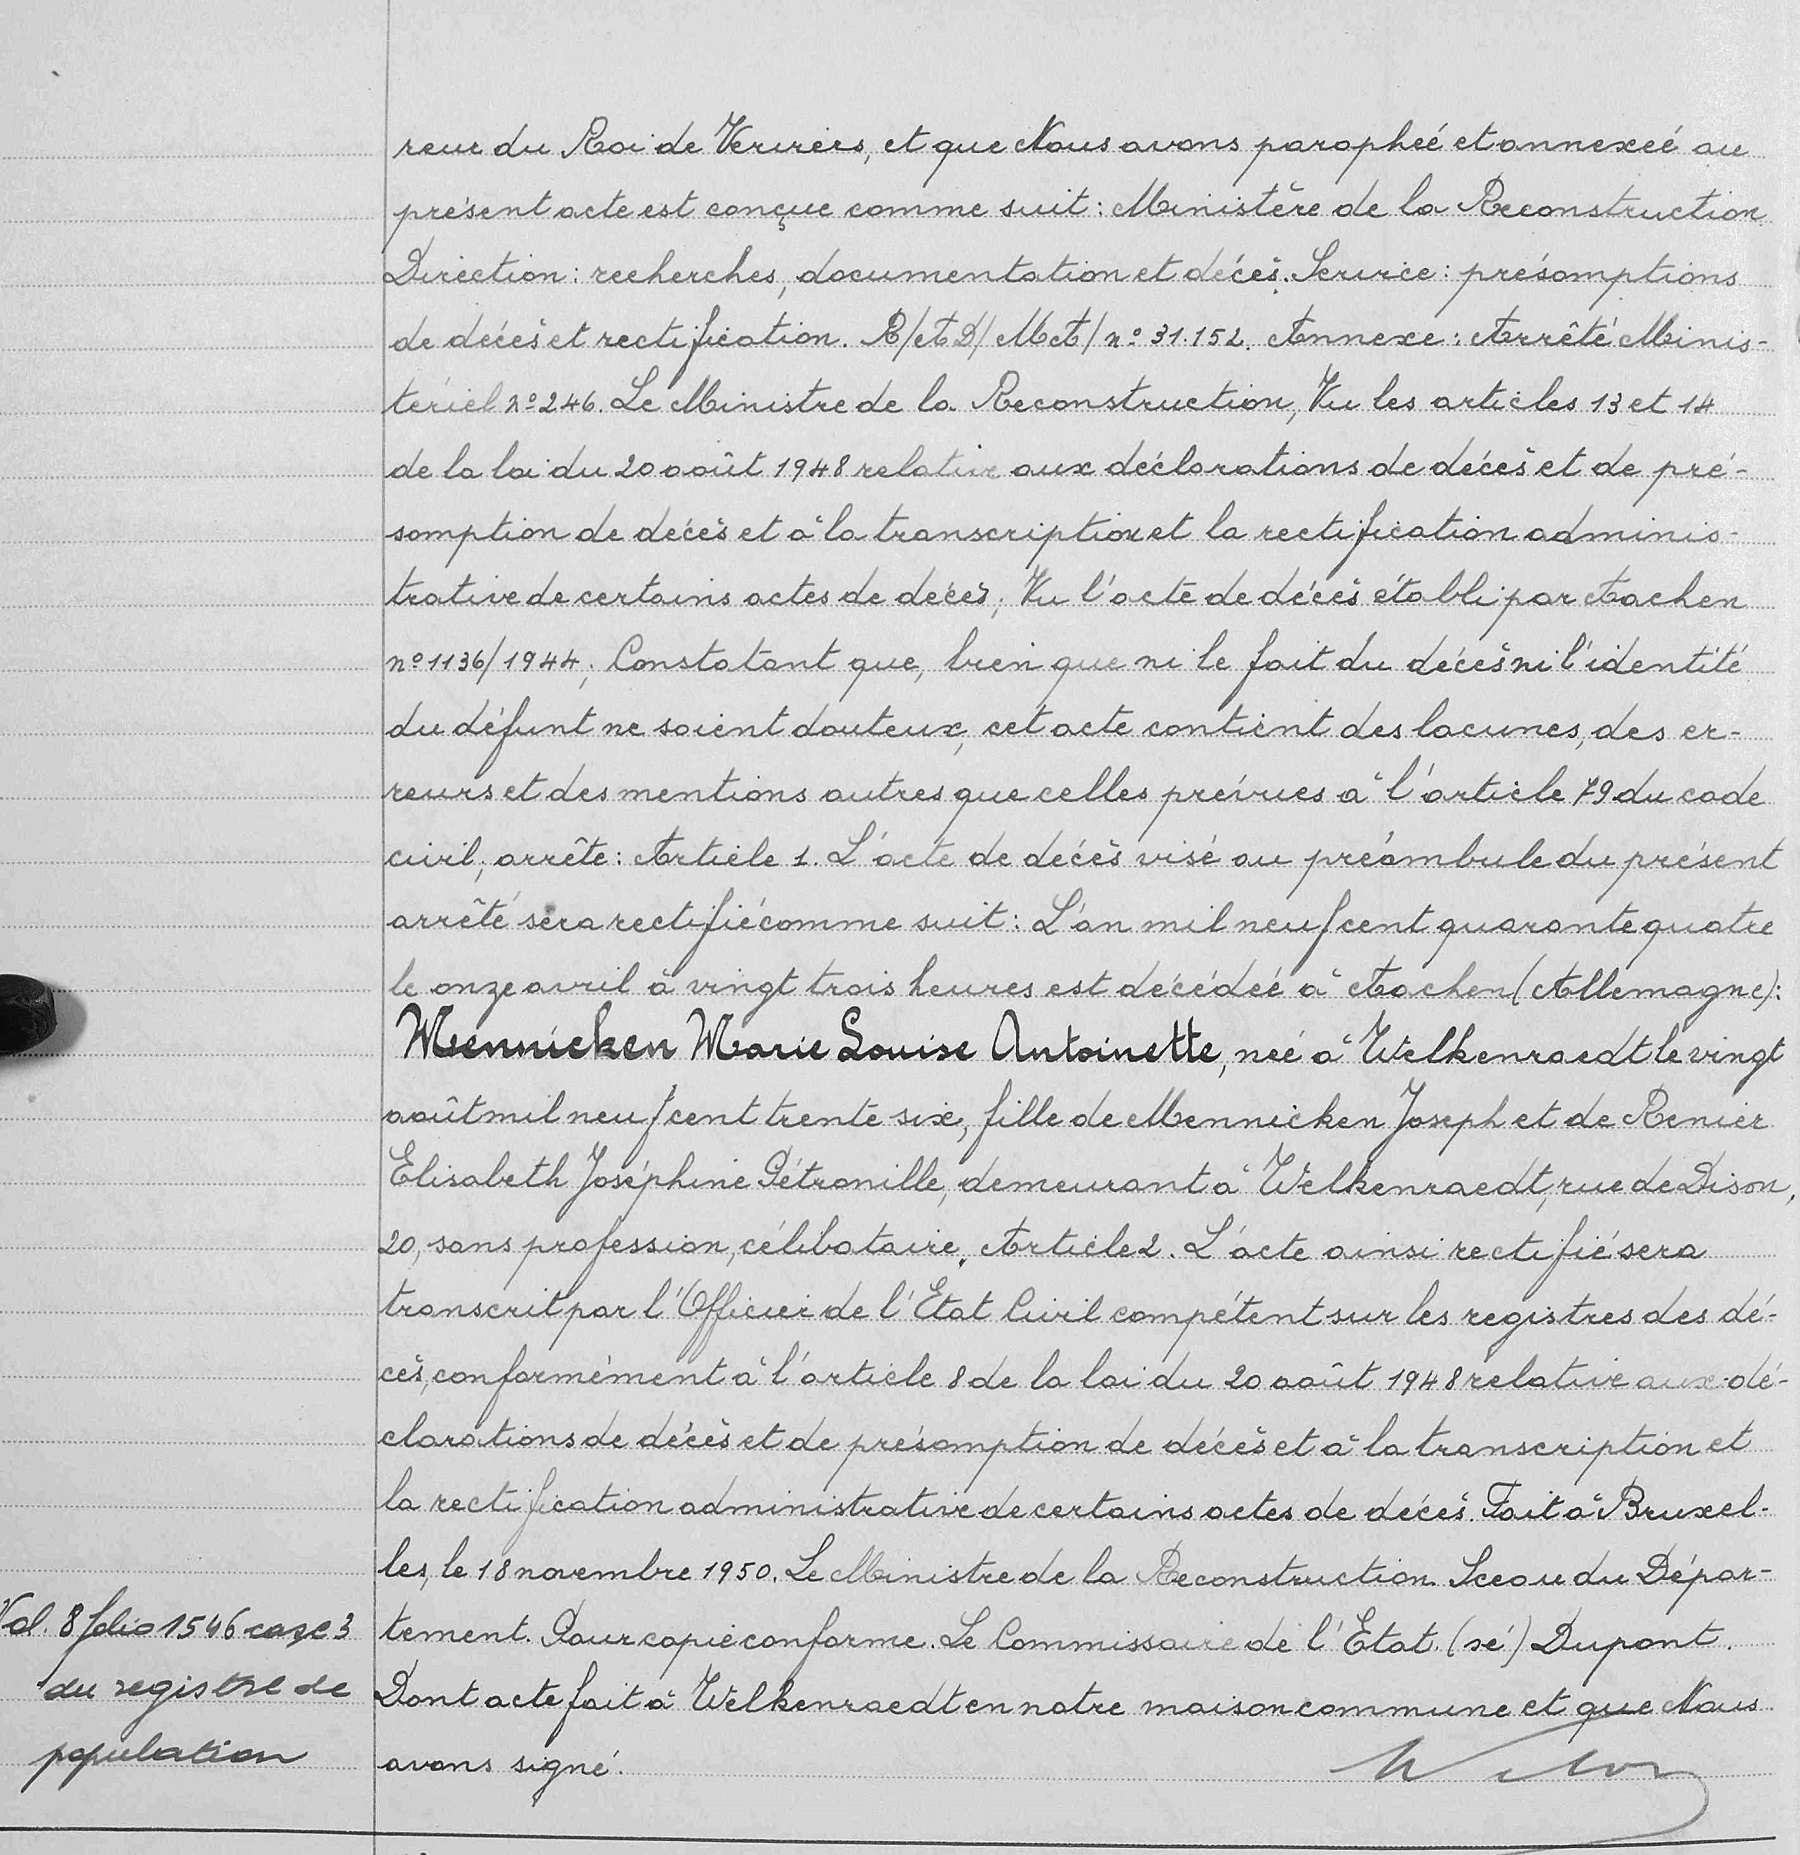 reur du Roi de Verviers, et que Nous avons parapheé et annexeé au
présent acte est conçue comme suit : Ministère de la Reconstruction
Direction : recherches, documentation et décès. Service : présomptions
de décès et rectification. R/AD/MA/ nº 31.152. Annexe : Arrêté Minis-
tériel nº 246. Le Ministre de la Reconstruction, Vu les articles 13 et 14
de la loi du 20 août 1948 relative aux déclarations de décès et de pré-
somption de décès et à la transcription et la rectification adminis-
trative de certains actes de décès ; Vu l'acte de décès établi par Aachen
nº 1136/1944 ; Constatant que, bien que ni le fait du décès ni l'identité
du défunt ne soient douteux, cet acte contient des lacunes, des er-
reurs et des mentions autres que celles prévues à l'article 79 du code
civil, arrête : Article 1. L'acte de décès visé au préambule du présent
arrêté sera rectifié comme suit : L'an mil neuf cent quarante quatre
le onze avril à vingt trois heures est décédée à Aachen (Allemagne) :
Mennicken Marie Louise Antoinette, née à Welkenraedt le vingt
août mil neuf cent trente six, fille de Mennicken Joseph et de Renier
Elisabeth Joséphine Pétronille, demeurant à Welkenraedt, rue de Dison,
20, sans profession, célibataire. Article 2. L'acte ainsi rectifié sera
transcrit par l'Officier de l'Etat Civil compétent sur les registres des dé-
cès, conformément à l'article 8 de la loi du 20 août 1948 relative aux dé-
clarations de décès et de présomption de décès et à la transcription et
la rectification administrative de certains actes de décès. Fait à Bruxel-
les, le 18 novembre 1950. Le Ministre de la Reconstruction. Sceau du Dépar-
tement. Pour copie conforme. Le Commissaire de l'Etat. (sé) Dupont.
Dont acte fait à Welkenraedt en notre maison commune et que Nous
avons signé.
Vol. 8 folio 1546 case 3
du registre de
population